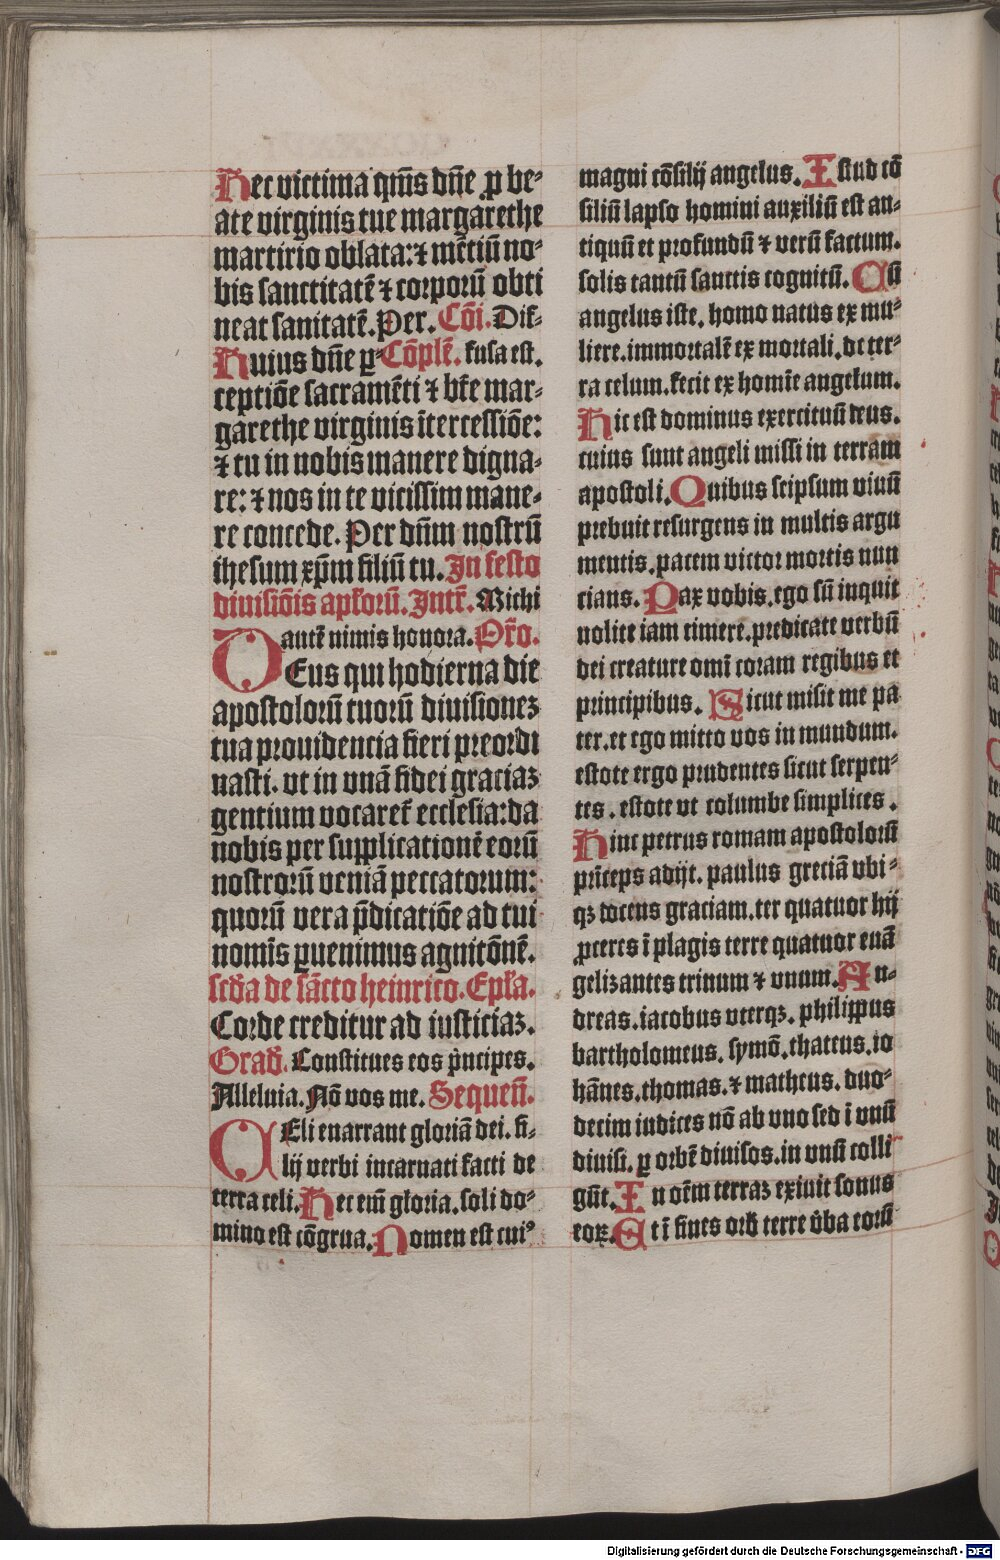 Hec victima q̄mꝰ dn̄e ꝓ be⸗
ate virginis tue margarethe
martirio oblata:⁊ mētiū no⸗
bis sanctitatē ⁊ corporū obti
neat sanitatē. Per. Cōi. Dif⸗
Huius dn̄e ꝑ⸗ Cōplē. fusa est.
ceptiōe sacramēti ⁊ bt̄e mar⸗
garethe virginis ītercessiōe:
⁊ tu in nobis manere digna⸗
re: ⁊ nos in te vicissim mane⸗
re concede. Per dn̄m nostrū
ihesum xp̄m filiū tu. In festo
diuisiōis apl̄orū. Intr̄. Michi
autē nimis honora. Or̄o.
DEus qui hodierna die
apostolorū tuorū diuisionez
tua prouidencia fieri preordi
nasti. vt in vnā fidei graciaz
gentium vocaret̄ ecclesia: da
nobis per supplicationē eorū
nostrorū veniā peccatorum:
quorū vera p̄dicatiōe ad tui
nomīs ꝑuenimus agnitōnē.
scd̄a de sācto heinrico. Epl̄a.
Corde creditur ad iusticiaz.
Grad̄. Constitues eos p̄ncipes.
Alleluia. Nō vos me. Sequen̄.
CEli enarrant gloriā dei. fi⸗
lij verbi incarnati facti de
terra celi. Hec em̄ gloria. soli do⸗
mino est cōgrua. Nomen est cuiꝰ
magni cōsilij angelus. Istud cō
siliū lapso homini auxiliū est an⸗
tiquū et profundū ⁊ verū factum.
solis tantū sanctis cognitū. Cū
angelus iste. homo natus ex mu⸗
liere. immortalē ex mortali. de ter⸗
ra celum. fecit ex homīe angelum.
Hic est dominus exercituū deus.
cuius sunt angeli missi in terram
apostoli. Quibus seipsum viuū
prebuit resurgens in multis argu
mentis. pacem victor mortis nun
cians. Pax vobis. ego sū inquit
nolite iam timere. predicate verbū
dei creature omī coram regibus et
principibus. Sicut misit me pa
ter. et ego mitto vos in mundum.
estote ergo prudentes sicut serpen⸗
tes. estote vt columbe simplices.
Hinc petrus romam apostolorū
prīceps adijt. paulus greciā vbi⸗
qꝫ docens graciam. ter quatuor hij
ꝓceres ī plagis terre quatuor euā
gelizantes trinum ⁊ vnum. An⸗
dreas. iacobus vterqꝫ. philippus
bartholomeus. symō. thateus. io
hānes. thomas. ⁊ matheus. duo⸗
decim iudices nō ab vno sed ī vnū
diuisi. ꝑ orbē diuisos. in vnū colli
gūt. In oēm terraz exiuit sonus
eoꝝ. Et ī fines orb̄ terre v̄ba eorū
Digitalisierung gefördert durch die Deutsche Forschungsgemeinschaft - DFG